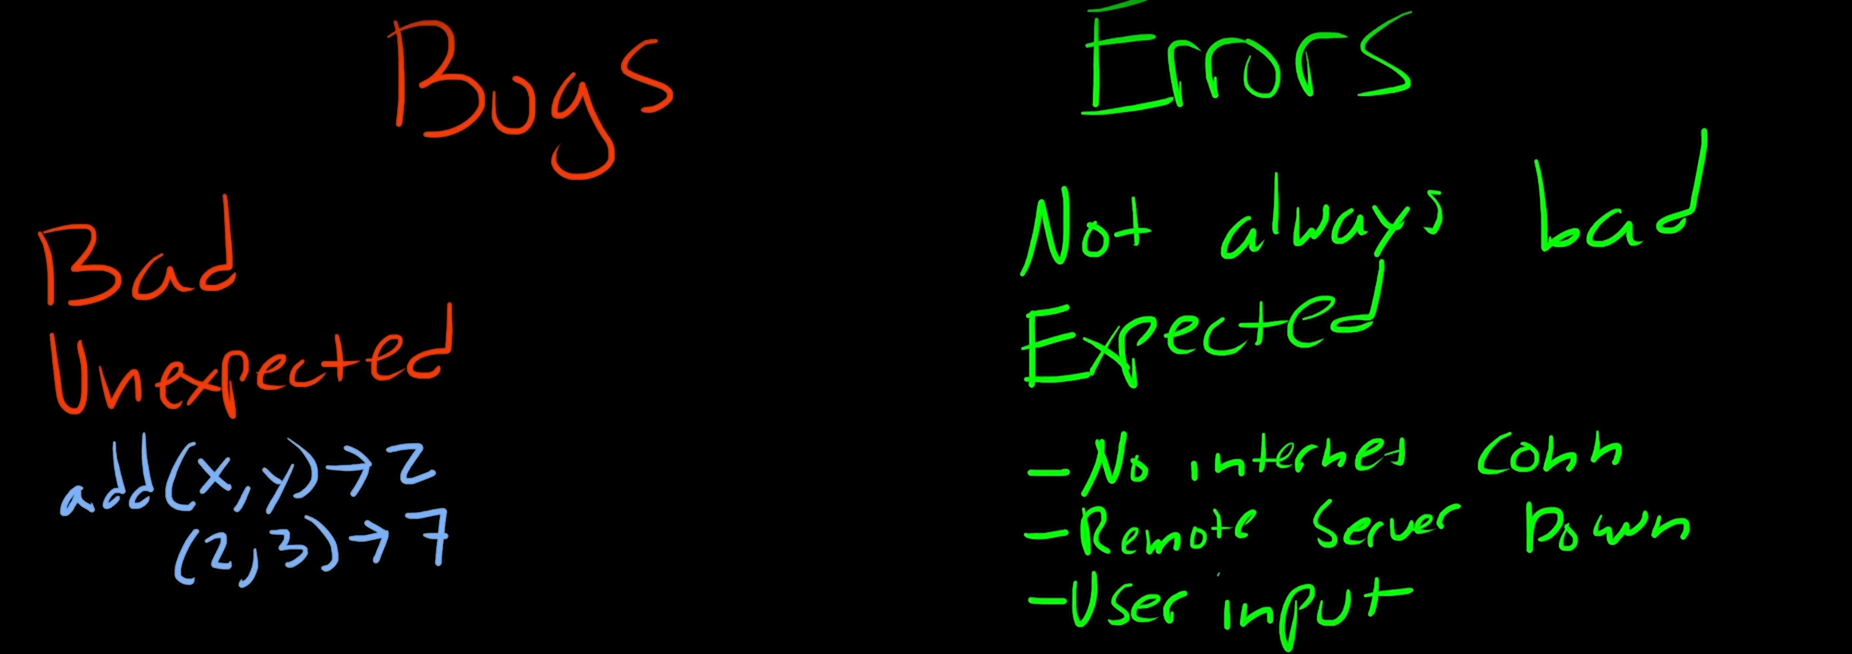 Bugs
Bad
Unexpected
add(x,y)→2
(2,3)→7
Errors
Not always bad
Expected
- No internet conn
- Remote Server Down
- User input